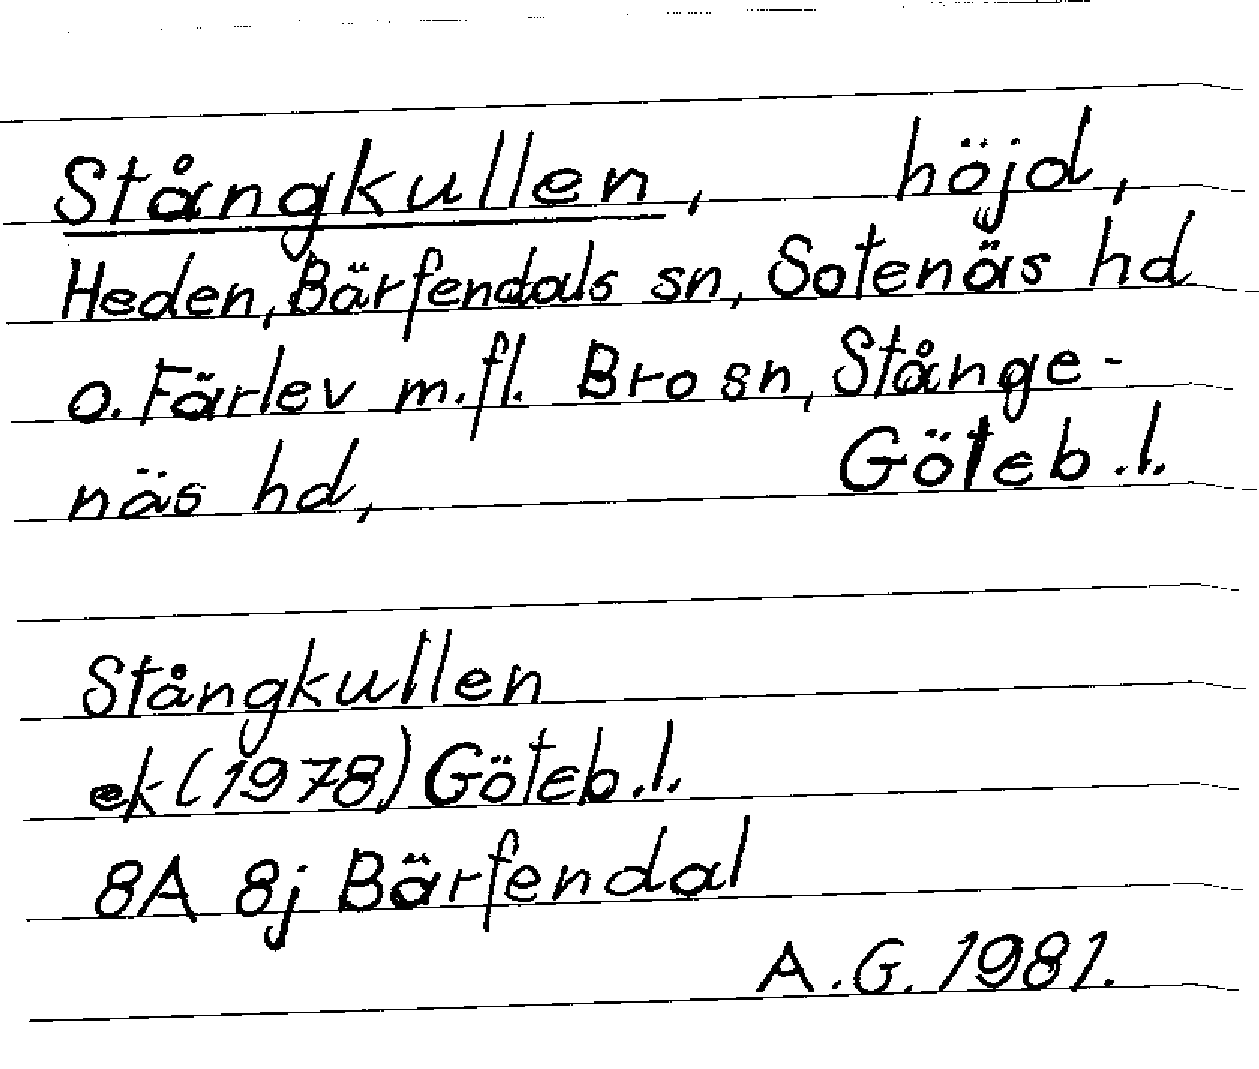 Stångkullen, höjd,
Heden, Bärfendals sn, Sotenäs hd
o. Färlev m.fl. Bro sn, Stånge-
näs hd, Göteb.l.
Stångkullen
ek (1978) Göteb.l.
8A 8j Bärfendal
A.G. 1981.